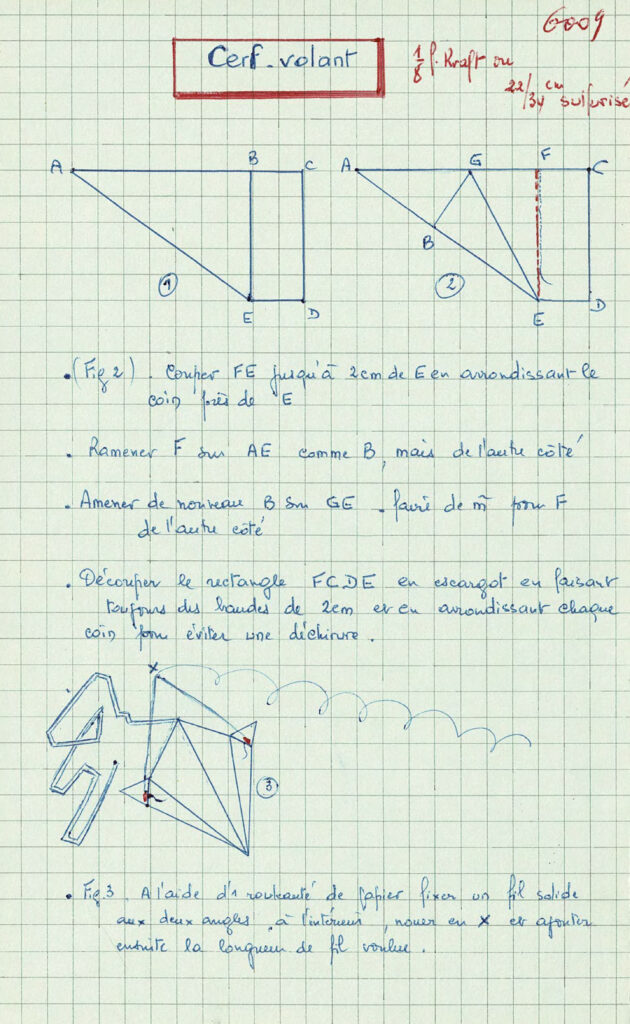 6009
Cerf-volant
1/8 f. Kraft ou
22/34 cm sulfurisé
A B C A G F C
B
1 2
E D E D
. (Fig 2) . Couper FE jusqu'à 2cm de E en arrondissant le
coin près de E
. Ramener F sur AE comme B, mais de l'autre côté
. Amener de nouveau B sur GE . faire de m̃ pour F
de l'autre côté
. Découper le rectangle FCDE en escargot en faisant
toujours des bandes de 2cm et en arrondissant chaque
coin pour éviter une déchirure.
X
3
. Fig 3. A l'aide d'1 de papier fixer un fil solide
aux deux angles, à l'intérieur, nouer en X et ajouter
ensuite la longueur de fil voulue.